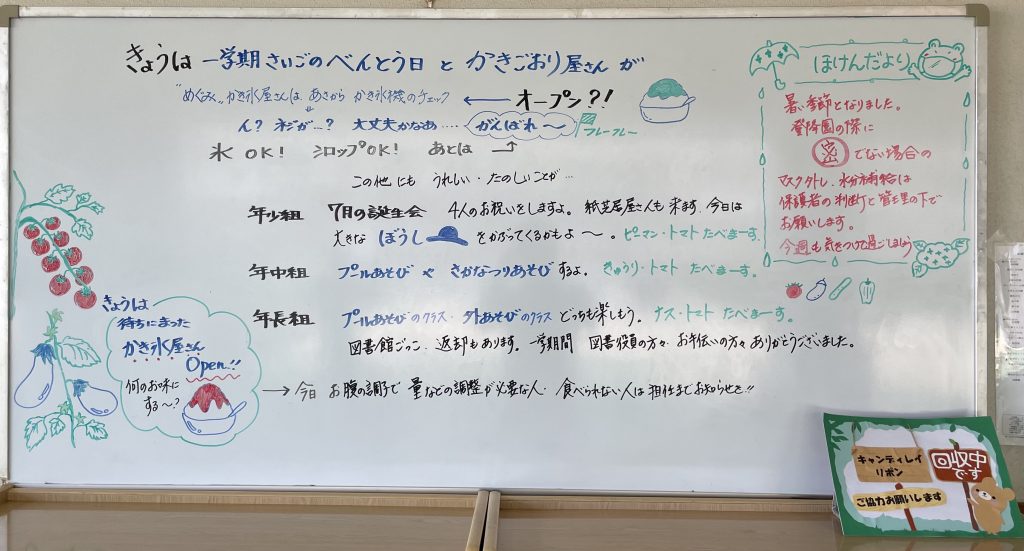 きょうは 一学期さいごのべんとう日 と かきごおり屋さん が
"めぐみ"かき氷屋さんは あさから かき氷機のチェック ← オープン?!
ん? ネジが…? 大丈夫かなあ…‥ がんばれ〜 フレーフレー
氷 OK! シロップOK! あとは
この他にも うれしい・たのしいことが…
年少組 7月の誕生会 4人のお祝いをしますよ。紙芝居屋さんも来ます。今日は
大きな ぼうし をかぶってくるかもよ〜。ピーマン・トマト たべまーす。
年中組 プールあそび や さかなつりあそび するよ。きゅうり・トマト たべまーす。
年長組 プールあそびのクラス・外あそびのクラス どっちも楽しもう。ナス・トマト たべまーす。
図書館ごっこ、返却もあります。一学期間 図書役員の方々・お手伝いの方々 ありがとうございました。
→ 今日 お腹の調子で 量などの調整が必要な人・食べられない人は 担任までお知らせを!!
きょうは
待ちにまった
かき氷屋さん
Open!!
何のお味に
する〜?
ほけんだより
暑い季節となりました。
登降園の際に
密 でない場合の
マスク外し、水分補給は
保護者の判断と管理の下で
お願いします。
今週も気をつけて過ごしましょう
キャンディレイ
リボン
回収中
です
ご協力お願いします